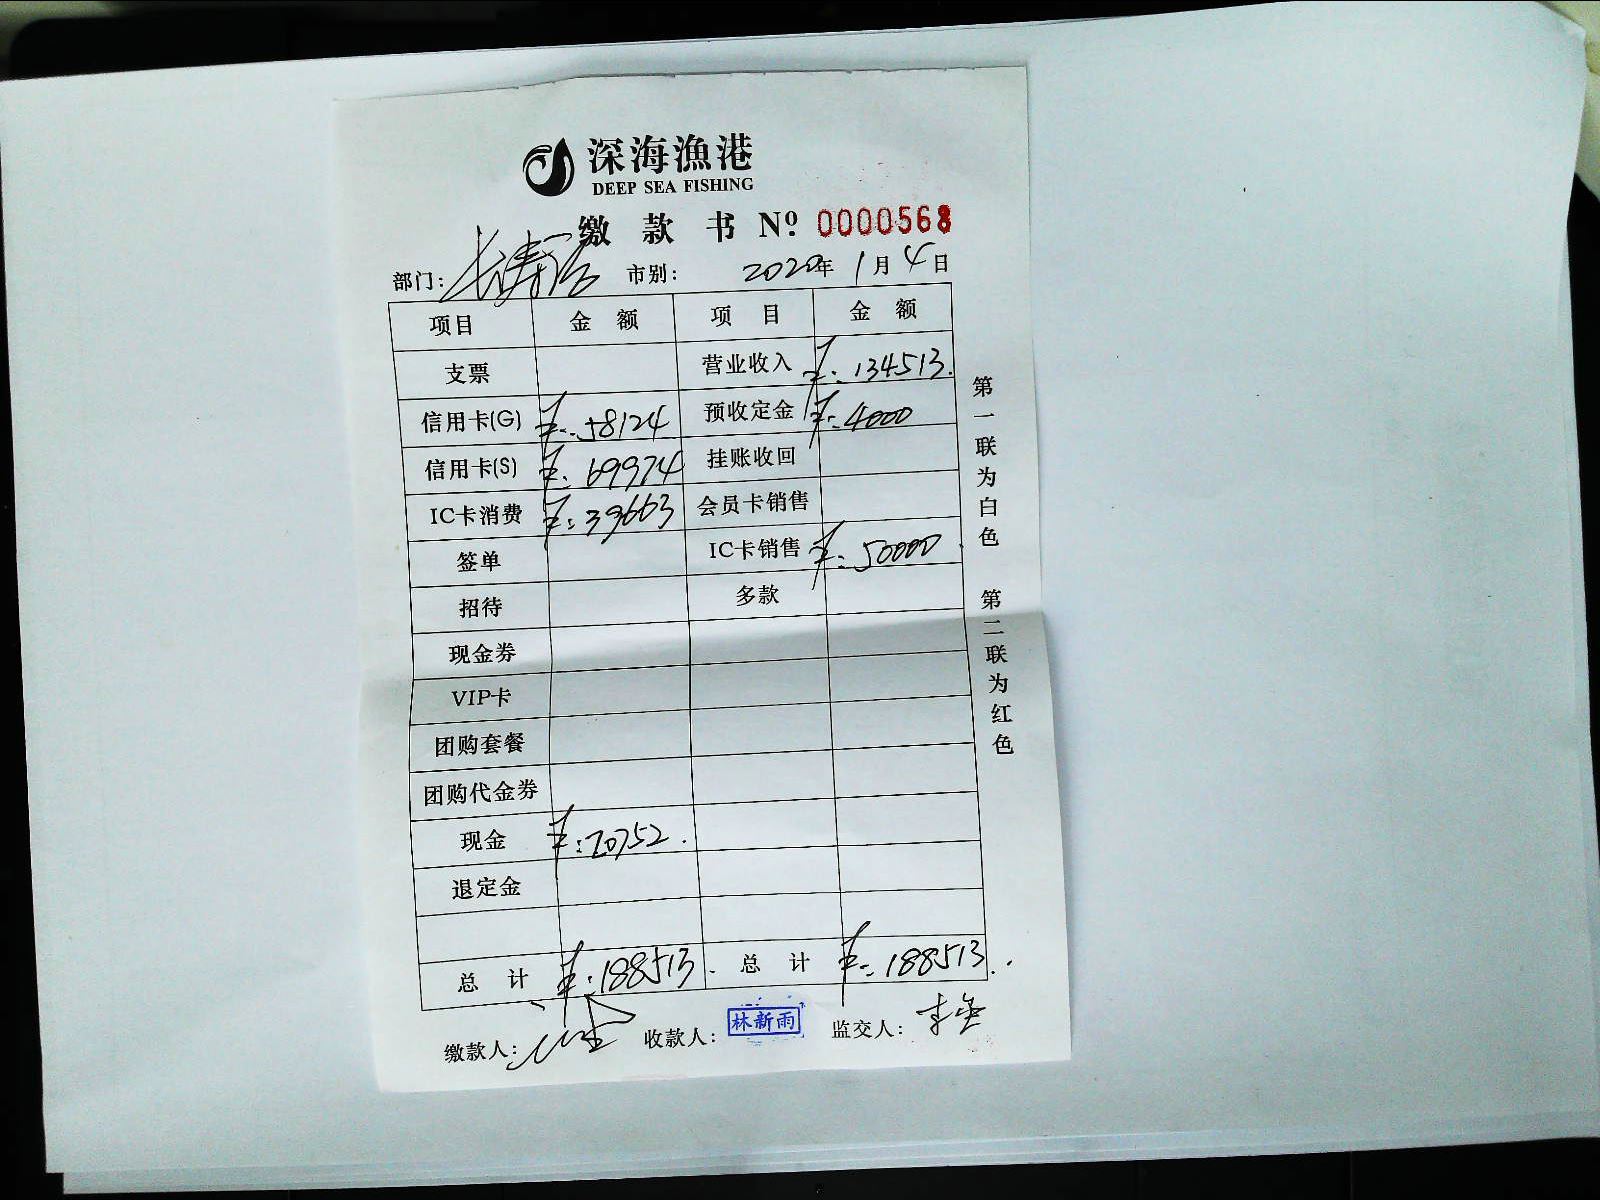 深海漁港
DEEP SEA FISHING
缴款书 Nº 0000568
部门: 长寿路 市别: 2020年1月4日
项目 金额 项目 金额
支票 营业收入 ¥:134513.
信用卡(G) ¥:58124 预收定金 ¥:4000
信用卡(S) ¥:69974 挂账收回
IC卡消费 ¥:39663 会员卡销售
签单 IC卡销售 ¥:50000
招待 多款
现金券
VIP卡
团购套餐
团购代金券
现金 ¥:20752.
退定金
总计 ¥:188513. 总计 ¥:188513.
缴款人: 收款人: 林新雨 监交人:
第一联为白色 第二联为红色